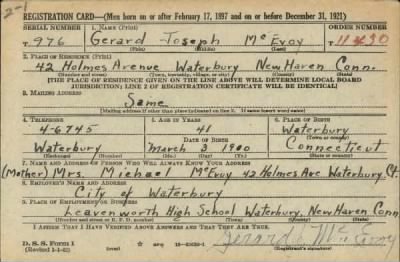 2-1
REGISTRATION CARD—(Men born on or after February 17, 1897 and on or before December 31, 1921)
SERIAL NUMBER 1. NAME (Print) ORDER NUMBER
T 976 Gerard Joseph McEvoy 11430
(First) (Middle) (Last)
2. PLACE OF RESIDENCE (Print)
42 Holmes Avenue Waterbury New Haven Conn.
(Number and street) (Town, township, village, or city) (County) (State)
[THE PLACE OF RESIDENCE GIVEN ON THE LINE ABOVE WILL DETERMINE LOCAL BOARD
JURISDICTION; LINE 2 OF REGISTRATION CERTIFICATE WILL BE IDENTICAL]
3. MAILING ADDRESS
Same
[Mailing address if other than place indicated on line 2. If same insert word same]
4. TELEPHONE 5. AGE IN YEARS 6. PLACE OF BIRTH
4-6745 41 Waterbury
DATE OF BIRTH (Town or county)
Waterbury March 3 1900 Connecticut
(Exchange) (Number) (Mo.) (Day) (Yr.) (State or country)
7. NAME AND ADDRESS OF PERSON WHO WILL ALWAYS KNOW YOUR ADDRESS
(Mother) Mrs. Michael McEvoy 42 Holmes Ave Waterbury Ct.
8. EMPLOYER'S NAME AND ADDRESS
City of Waterbury
9. PLACE OF EMPLOYMENT OR BUSINESS
Leavenworth High School Waterbury, New Haven Conn
(Number and street or R. F. D. number) (Town) (County) (State)
I AFFIRM THAT I HAVE VERIFIED ABOVE ANSWERS AND THAT THEY ARE TRUE.
D. S. S. Form 1
(Revised 1-1-42)
Gerard J McEvoy
(Registrant's signature)